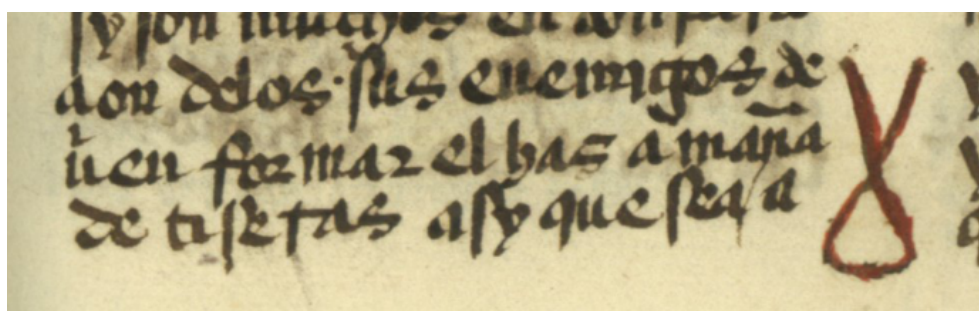 sy son muchos en conpara
çion delos sus enemigos de
uen formar el has a manã
de tiseras asy que sea a